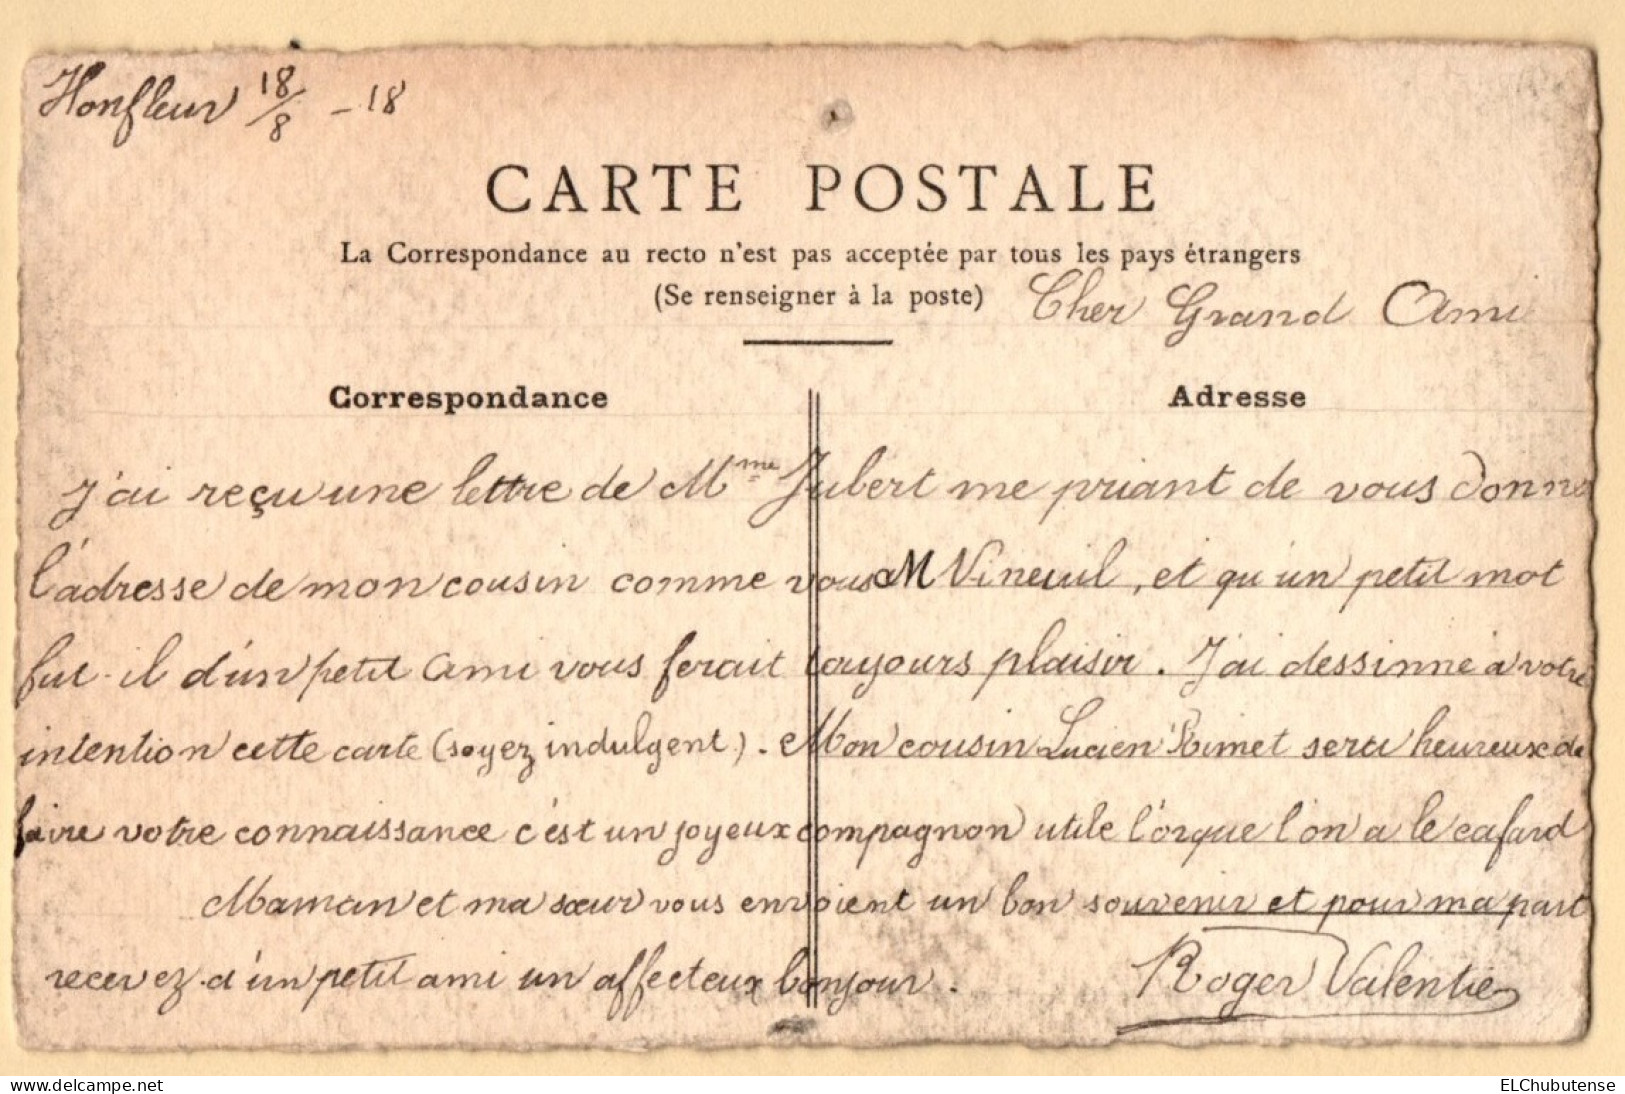 Honfleur 18/8 - 18
CARTE POSTALE
La Correspondance au recto n'est pas acceptée par tous les pays étrangers
(Se renseigner à la poste)
Cher Grand Ami
Correspondance
Adresse
J'ai reçu une lettre de Mme Jubert me priant de vous donne
l'adresse de mon cousin comme vous M Vineuil, et qu'un petit mot
fut-il d'un petit ami vous ferait toujours plaisir. J'ai dessinné à votre
intention cette carte (soyez indulgent). Mon cousin Lucien Rimet sera heureux de
faire votre connaissance c'est un joyeux compagnon utile l'orque l'on a le cafard
Maman et ma sœur vous envoient un bon souvenir et pour ma part
recevez d'un petit ami un affecteux bonjour.
Roger Valentie
delcampe.net
ELChubutense